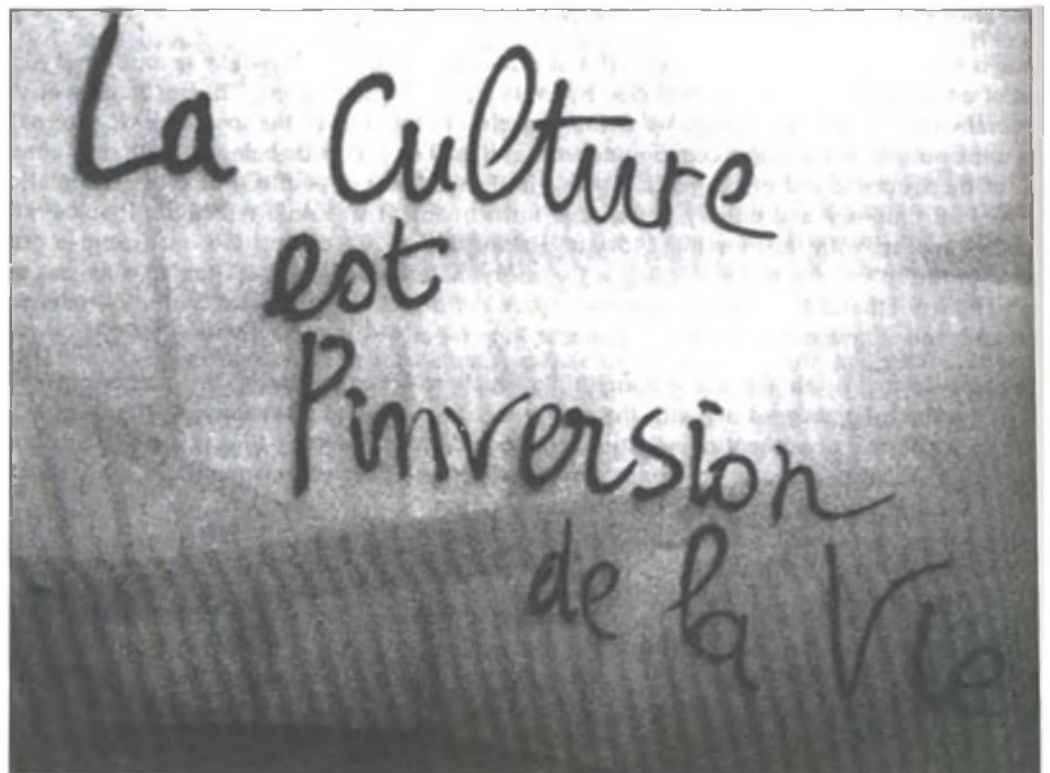 La Culture
est
l'inversion
de la Vie